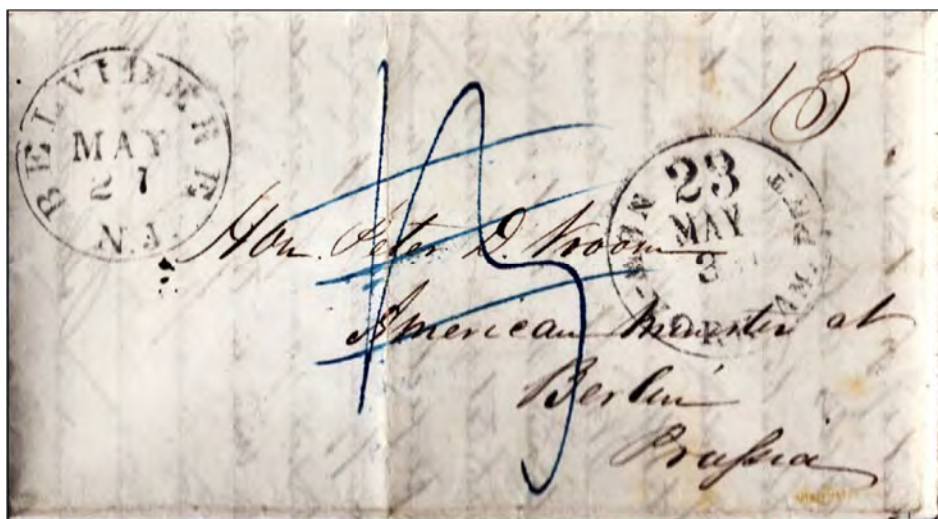 BELVIDERE
MAY
27
N.J.
15
NEW-YORK AM. PKT.
23
MAY
3
Hon. Peter D. Vroom
American Minister at
Berlin
Prussia